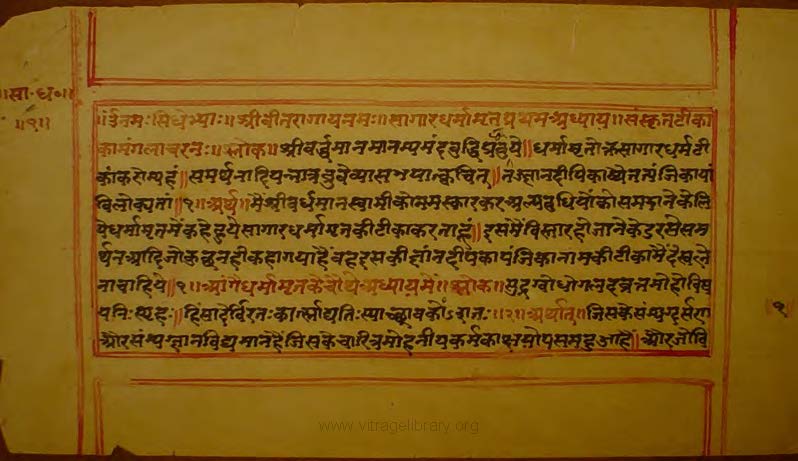 ॥सा॰ध॰॥
॥१॥
॥उँनमःसिधेभ्याः॥श्रीवीतरागायनमः॥सागारधर्मामृतप्रथमअध्याय॥संस्कृतटीका
कामंगलाचरनः॥स्लोक॥श्रीवर्द्धमानमानम्यमंदबुद्धिप्रबुद्धये॥धर्मामृतोक्तसागारधर्मटी
कांकरोम्यहं॥समर्थनादियन्नात्रब्रुवेव्यासभयात्क्वचित्॥तज्ज्ञानदीपिकाख्येतत्पंजिकायां
विलोक्यतां॥१॥अर्थ॥मैश्रीवर्धमानस्वामीकोनमस्कारकरअल्पबुधियोंकोसमझानेकेलि
येधर्मामृतमेंकहेहुयेसागारधर्मामृतकीटीकाकरताहूं॥इसमेंविस्तारहोजानेकेडरसेसम
र्थनआदिजोकछुनहीकहागयाहैंवहइसकीज्ञानदीपकापंजिकानामकीटीकामेंदेखले
नाचाहिये॥१॥आगैधर्मामृतकेचौथेअध्यायमें॥स्लोक॥सुदृग्बोधोगलद्वृत्तमोहोविष
यनिःस्पृहः॥हिंसादेर्विरतःकार्त्स्न्याद्यतिःस्याच्छ्रावकोंऽशतः॥२॥अर्थात्॥जिसकेसंम्यग्दर्सन
औरसंम्यज्ञानविद्यमानहैंजिसकेचारित्रमोहनीयकर्मकाक्षयोपसमहुआहैं॥औरजोवि
१
www.vitragelibrary.org